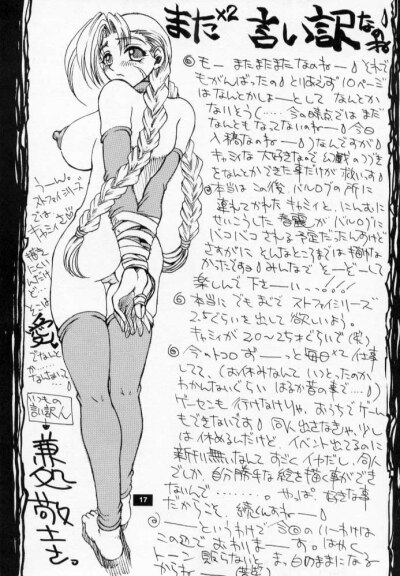 また×2 言い訳なのね
◎もー またまたまたなのねー♪ それで
もがんばったの♪ とりあえず10ページ
はなんとかしよーとして なんとか
ないそう(……今の時点ではまだ
なんともなってないのねー♪ 今日
入稿なのねー♪)なんですが
◎本当は この後 バルログの所に
連れてかれたキャミィと、にんむに
せいこうした春麗が バルログに
さすがに とんなところまでは描けな
かったですゥ♪ みんなで そーぞーして
楽しんで下さーいっ…!!
◎本当に でも まじで ストファイシリーズ
2.5ぐらいを出して欲しいよう。
キャミィが20〜25才ぐらいで(笑)
◎今のトコロ ずーっと毎日×2 仕事
してて、(お休みなんて いつとったのか
わかんないぐらい はるか昔の事で…♪)
ゲーセンも行けなけりゃ、おうちでゲーム
もできないです♪ 同人出さなきゃ、少し
は休めるんだけど イベント出てるのに
新刊無いなんて すごく イヤだし、同人
でしか、自分勝手な絵を描く事ができ
ないんで……。 やっぱ 好きな事
だからこそ、続くんすねー♪
◎——というわけで 今回のいーわけは
この辺で おわりまーす。
トーン 貼らないとー ま、白のままになる
からねー(笑)
うーん。
ストファイシリーズ
では、
キャミィが
愛。
なんで
いつもの
言い訳人
兼処敬士
17